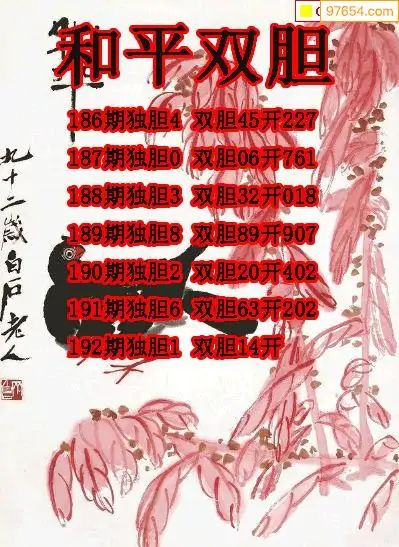 97654.com
和平双胆
186期独胆4 双胆45开227
187期独胆0 双胆06开761
188期独胆3 双胆32开018
189期独胆8 双胆89开907
190期独胆2 双胆20开402
191期独胆6 双胆63开202
192期独胆1 双胆14开
九十二岁白石老人